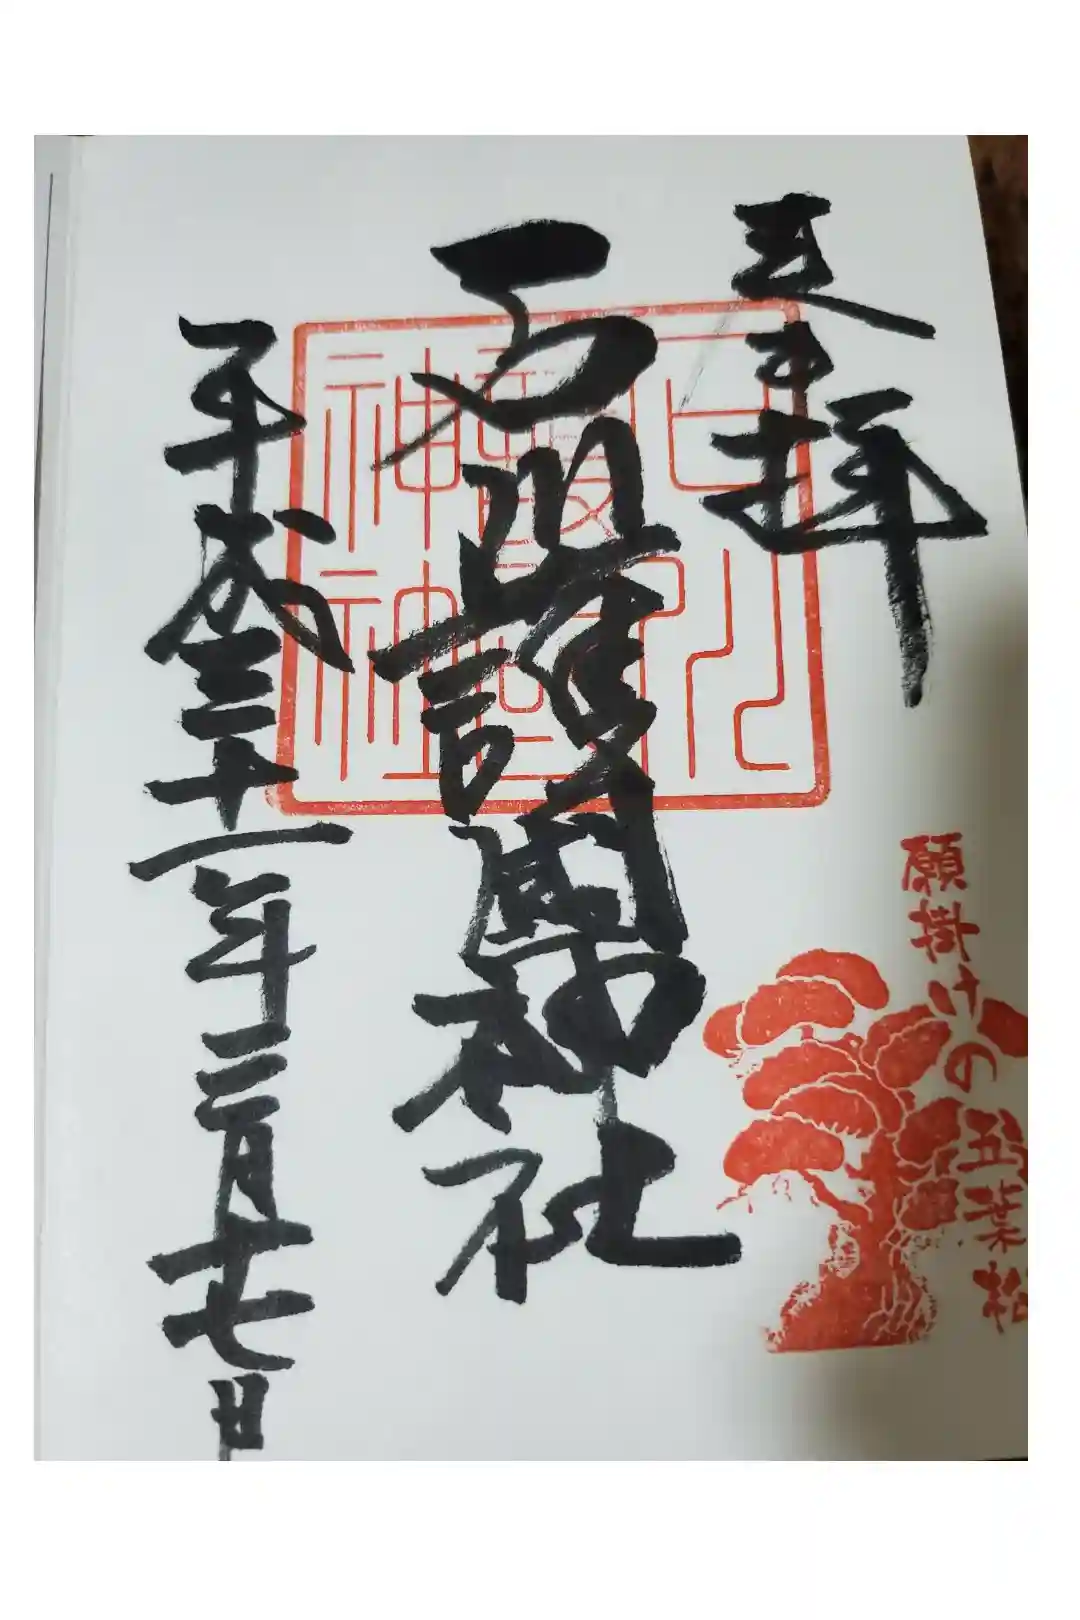 奉拝
石川護國神社
平成三十一年三月十七日
石川
護國
神社
願掛けの
五葉松